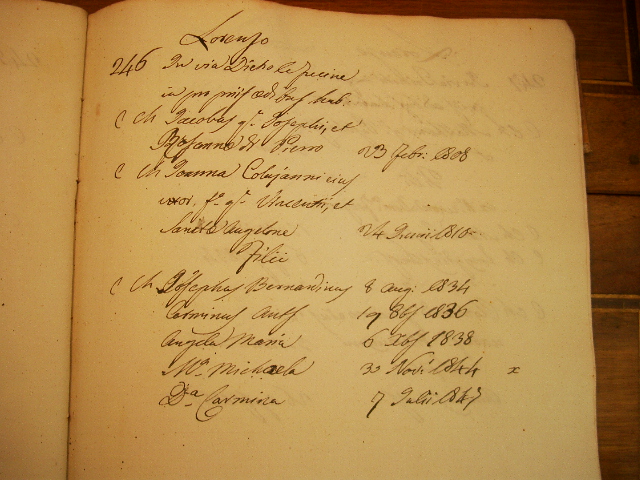 Lorenzo
246 In via Dietro le piscine
in propriis ædibus hab:
C Ch Jacobus q.m Josephi, et
Rosanna di Pierro 23 Febr: 1808
C Ch Joanna Colajanni ejus
uxor, f.a q.m Vincentii, et
Sancta Angelone 24 Junii 1810
Filii
C Ch Josephus Bernardinus 8 aug: 1834
Carminus Ant.s 19 8bs 1836
Angela Maria 6 Xbs 1838
M.a Michaela 30 Novi 1844 x
D.a Carmina 7 Julii 1847